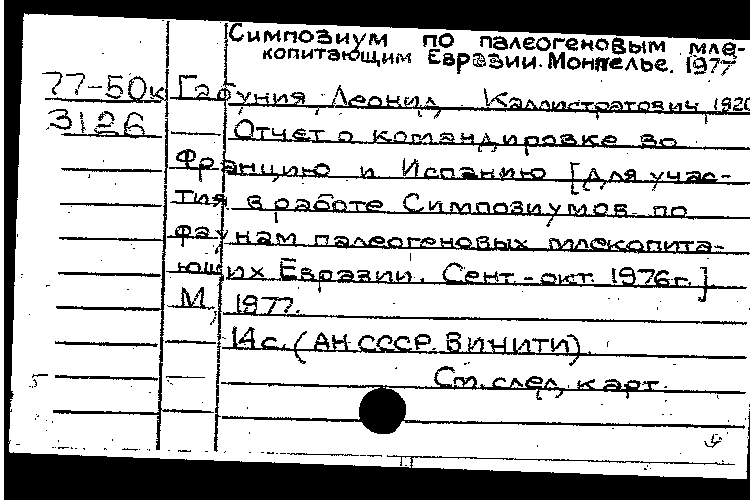 Симпозиум по палеогеновым мле-
копитающим Евразии. Монпелье. 1977
77-50к Габуния, Леонид Каллистратович, 1920
3126 Отчет о командировке во
Францию и Испанию [для учас-
тия в работе Симпозиумов по
фаунам палеогеновых млекопита-
ющих Евразии. Сент.-окт. 1976г.]
М., 1977.
14 с. (АН СССР. ВИНИТИ).
См. след. карт.
5